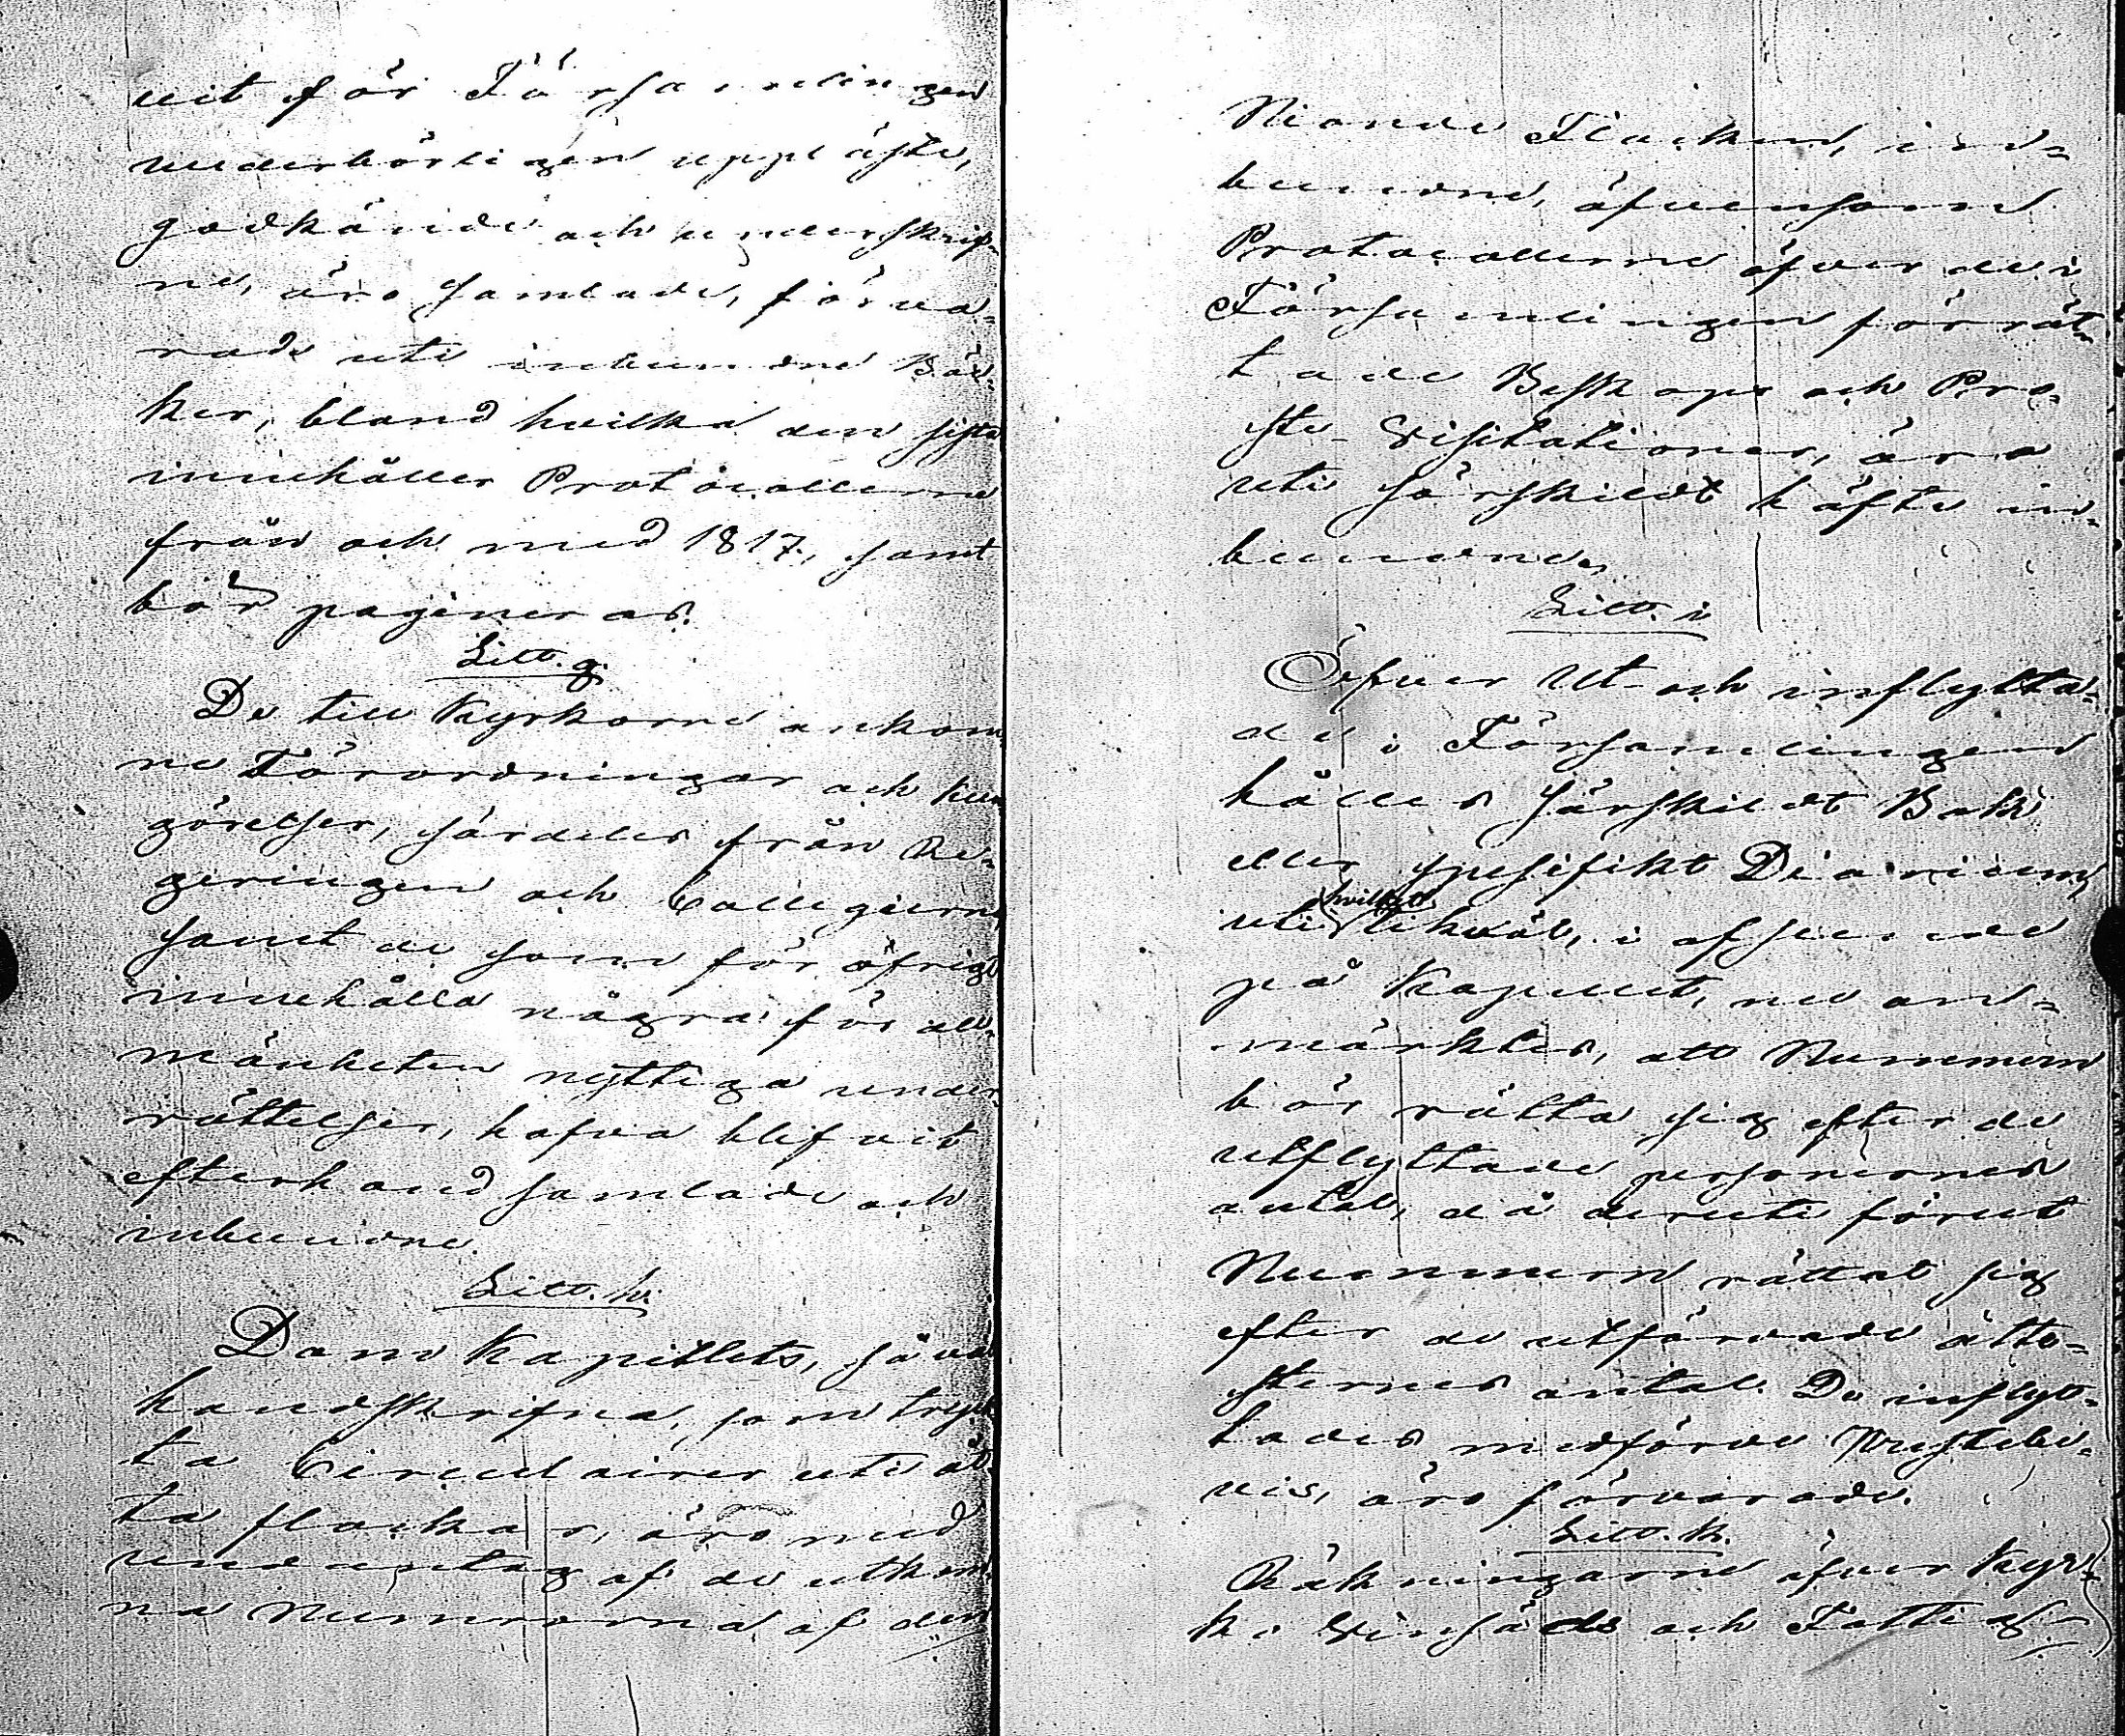 vit för Församlingen
vederbörligen uppläste,
godkände och underskrif-
ne, äro samlade, förva-
rade uti inbundne Böc-
ker, bland hvilka den sista
innehåller Protocollerne
från och med 1817, samt
bör pagineras.
Litt. g.
De till Kyrkorne ankom
ne Förordningar och kun
görelser, särdeles från Re-
geringen och Collegierne
samt de som för öfrigt
innehålla några för all-
mänheten nyttiga under-
rättelser, hafva blifvit
efterhand samlade och
inbundne.
Litt. h.
Dom Kapitlets, så väl
handskrifna, som tryck
ta Circulairer uti åt-
ta flockar, äro med
undantag af de utkom
na Numrorna af den
Nionde Flocken, in-
bundne, äfvensom
Protocollerne öfver de i
Församlingen förrät-
tade Biskops och Pro-
ste-Visitationer, äro
uti särskildt häfte in-
bundne.
Litt. i
Öfver Ut- och inflytta-
de i Församlingen
hålles särskildt Bok
eller specifikt Diarium
uti hvilket likväl, i afseende
på Kapellet, nu an-
märktes, att Numrern
bör rätta sig efter de
utflyttade personernes
antal, då deruti förut
Nummern rättat sig
efter de utfärdade atte-
sternes antal. De inflyt-
tades medförde Prestebe-
vis, äro förvarade.
Litt. k.
Räkningarne öfver Kyr-
ko Vinsäds och Fattig-